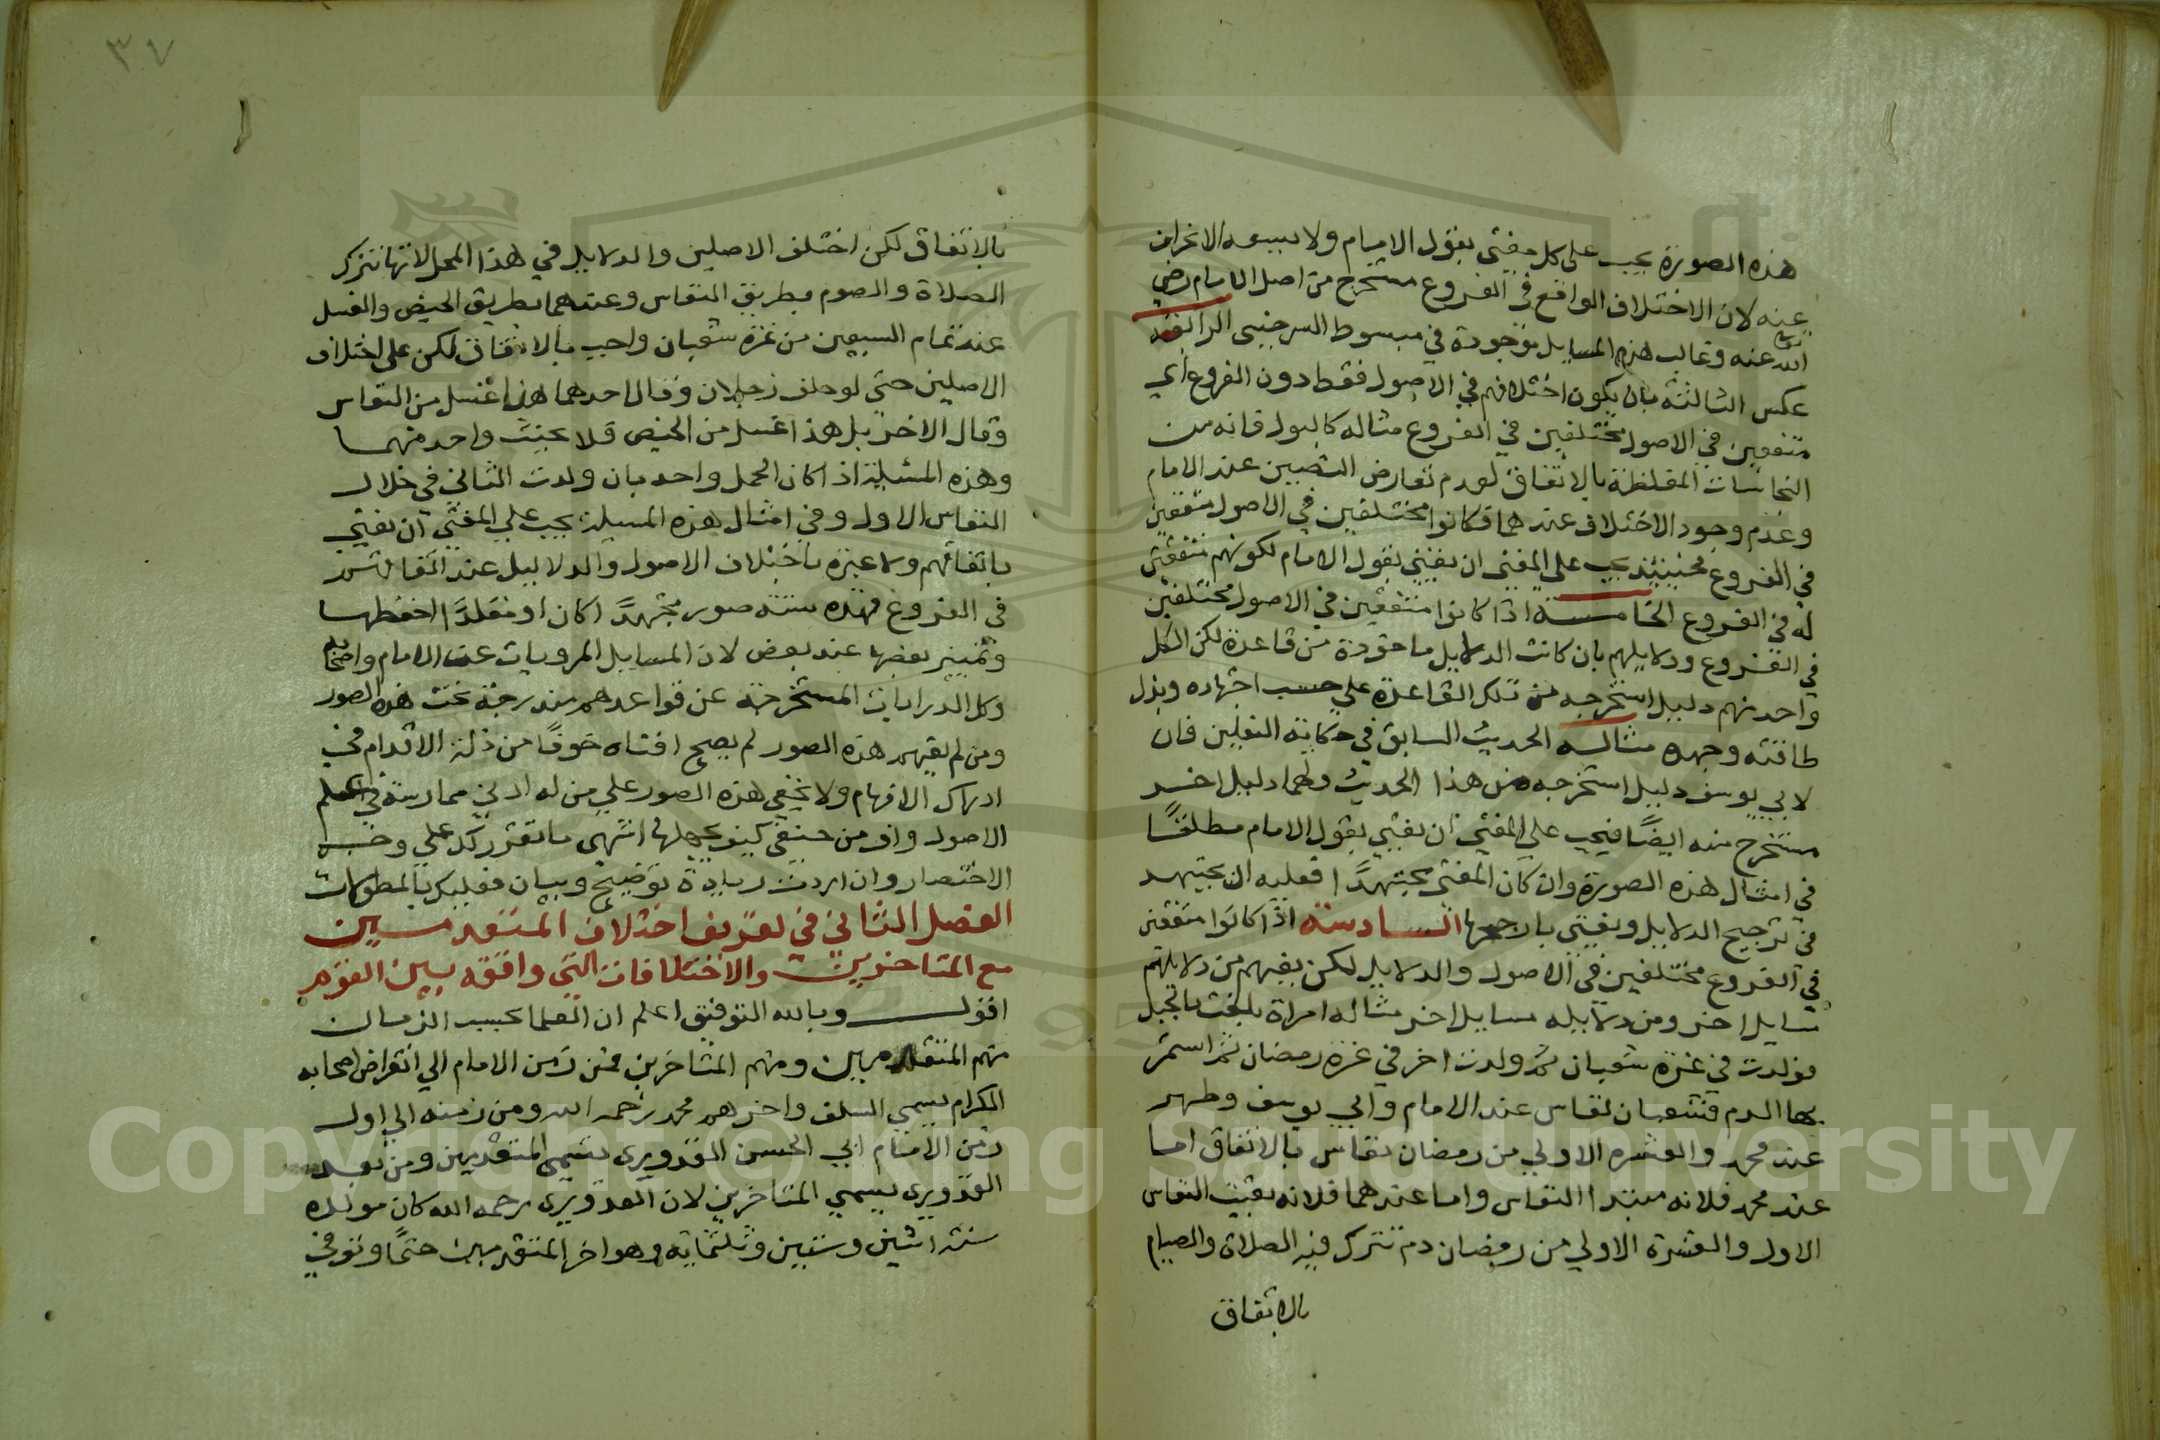 هذه الصورة يجب على كل مفتى بقول الامام ولا يسعه الانحراف
عنه لان الاختلاف الواقع فى الفروع مستخرج من اصل الامام رضي
الله عنه وغالب هذه المسايل موجودة في مبسوط السرخسى الرابعة
عكس الثالثة بان يكون اختلافهم في الاصول فقط دون الفروع اي
متفقين في الاصول مختلفين في الفروع مثاله كالبول فانه من
النجاسات المغلظة بالاتفاق لعدم تعارض النصين عند الامام
وعدم وجود الاختلاف عندهما فكانوا مختلفين في الاصول متفقين
في الفروع فحينئذ يجب على المفتى ان يفتى بقول الامام لكونهم متفقين
له في الفروع الخامسة اذا كانوا متفقين في الاصول مختلفين
في الفروع ودلايلهم بان كانت الدلايل ماخوذة من قاعدة لكن لكل
واحد منهم دليل استخرجه من تلك القاعدة على حسب اجتهاده وبذل
طاقته وجهده مثاله الحديث السابق في حكاية النعلين فان
لابي يوسف دليل استخرجه من هذا الحديث ولهما دليل اخر
مستخرج منه ايضًا فيجب على المفتي ان يفتي بقول الامام مطلقًا
في امثال هذه الصورة وان كان المفتى مجتهدًا فعليه ان يجتهد
في ترجيح الدلايل ويفتى بارجحها السادسة اذا كانوا متفقين
في الفروع مختلفين في الاصول والدلايل لكن يفهم من دلايلهم
مسايل اخر ومن دلايله مسايل اخر مثاله امراة بلغت بالحبل
فولدت في غزة شعبان ثم ولدت اخر في غرة رمضان ثم استمر
بها الدم فشعبان نفاس عند الامام وابي يوسف وطهر
عند محمد والعشرة الاولي من رمضان نفاس بالاتفاق اما
عند محمد فلانه مبتدا النفاس واما عندهما فلانه بقية النفاس
الاول والعشرة الاولي من رمضان دم تترك فيه الصلاة والصيام
بالاتفاق
٣٧
بالاتفاق لكن اختلف الاصلين والدلايل في هذا المحل لانها تترك
الصلاة والصوم بطريق النفاس وعندهما بطريق الحيض والغسل
عند تمام السبعين من غرة شعبان واجب بالاتفاق لكن على اختلاف
الاصلين حتى لو حلف رجلان وقال احدهما هذا غسل من النفاس
وقال الاخر بل هذا غسل من الحيض فلا يحنث واحد منهما
وهذه المسئلة اذا كان الحمل واحد بان ولدت الثاني في خلال
النفاس الاول وفي امثال هذه المسيلة يجب على المفتي ان يفتي
باتفاقهم ولا عبرة باختلاف الاصول والدلايل عند اتفاقهم
في الفروع فهذه ستة صور مجتهدًا كان او مقلدًا احفظها
وتمييز بعضها عند بعض لان المسايل المرويات عن الامام واصحابه
وكل الدرايات المستخرجة عن قواعدهم مندرجة تحت هذه الصور
ومن لم يفهم هذه الصور لم يصح افتاه خوفًا من زلة الاقدام في
ادراك الافهام ولا يخفي هذه الصور على من له ادني ممارسة في علم
الاصول واو من حنفى كيف يجهلها انتهى ما تقرر لك على وجه
الاختصار وان اردت زيادة توضيح وبيان فعليك بالمطولات
الفصل الثاني في تعريف اختلاف المتقدمسين
مع المتاخرين والاختلافات التي واقعه بين القوم
اقول وبالله التوفيق اعلم ان العلما بحسب الزمان
منهم المتقدمين ومنهم المتاخرين فمن زمن الامام الي انقراض اصحابه
الكرام يسمي السلف واخرهم محمد رحمه الله ومن زمنه الي اول
زمن الامام ابي الحسن القدوري يسمي المتقدمين ومن بعد
القدوري يسمي المتاخرين لان القدوري رحمه الله كان مولده
سنة اثنين وستين وثلثماية وهو اخر المتقدمين حتمًا وتوفي
Copyright © King Saud University